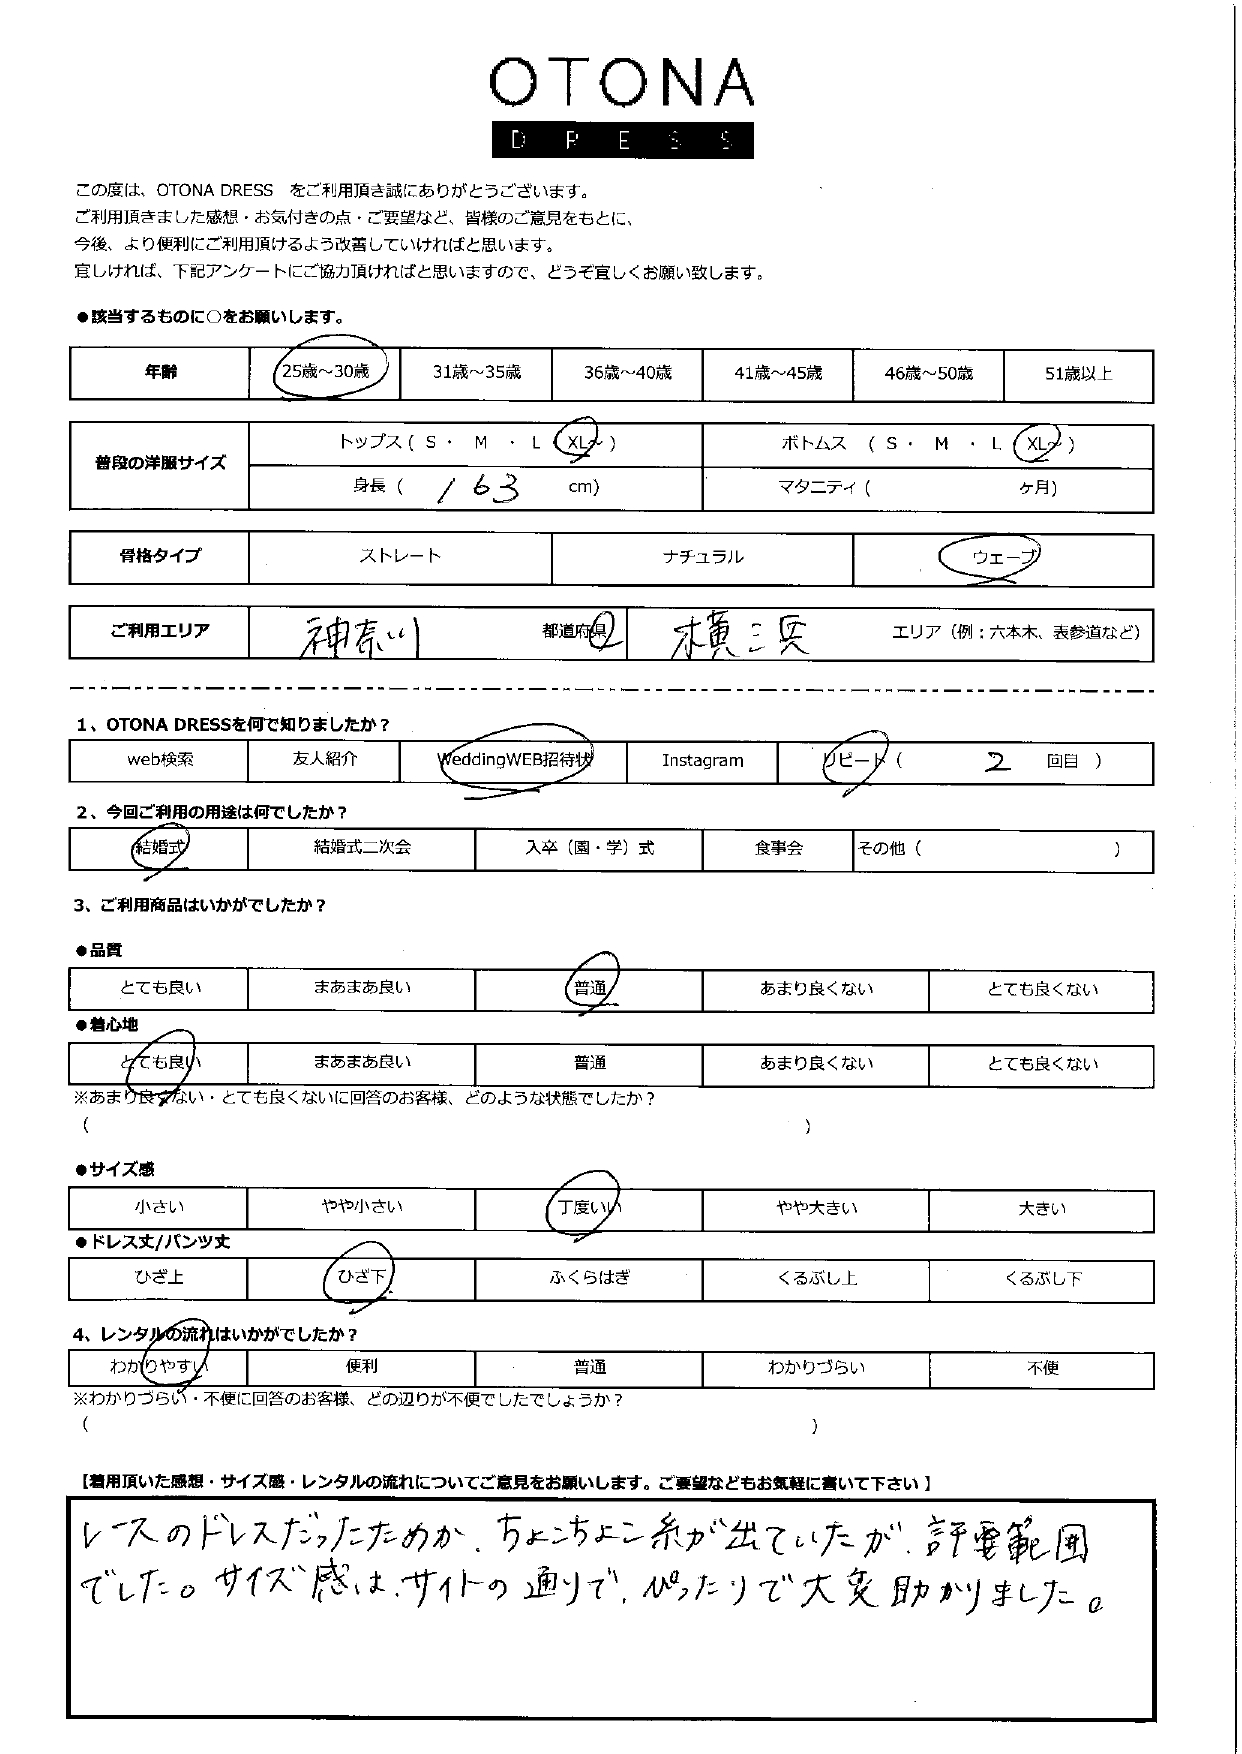 OTONA
DRESS
この度は、OTONA DRESS をご利用頂き誠にありがとうございます。
ご利用頂きました感想・お気付きの点・ご要望など、皆様のご意見をもとに、
今後、より便利にご利用頂けるよう改善していければと思います。
宜しければ、下記アンケートにご協力頂ければと思いますので、どうぞ宜しくお願い致します。
●該当するものに○をお願いします。
年齢 25歳～30歳 31歳～35歳 36歳～40歳 41歳～45歳 46歳～50歳 51歳以上
普段の洋服サイズ トップス ( S ・ M ・ L XL～ ) ボトムス ( S ・ M ・ L XL～ )
身長 ( 163 cm) マタニティ ( ヶ月)
骨格タイプ ストレート ナチュラル ウェーブ
ご利用エリア 神奈川 都道府県 横浜 エリア（例：六本木、表参道など）
1、OTONA DRESSを何で知りましたか？
web検索 友人紹介 WeddingWEB招待状 Instagram リピート ( 2 回目 )
2、今回ご利用の用途は何でしたか？
結婚式 結婚式二次会 入卒（園・学）式 食事会 その他 ( )
3、ご利用商品はいかがでしたか？
●品質
とても良い まあまあ良い 普通 あまり良くない とても良くない
●着心地
とても良い まあまあ良い 普通 あまり良くない とても良くない
※あまり良くない・とても良くないに回答のお客様、どのような状態でしたか？
( )
●サイズ感
小さい やや小さい 丁度いい やや大きい 大きい
●ドレス丈/パンツ丈
ひざ上 ひざ下 ふくらはぎ くるぶし上 くるぶし下
4、レンタルの流れはいかがでしたか？
わかりやすい 便利 普通 わかりづらい 不便
※わかりづらい・不便に回答のお客様、どの辺りが不便でしたでしょうか？
( )
【着用頂いた感想・サイズ感・レンタルの流れについてご意見をお願いします。ご要望などもお気軽に書いて下さい】
レースのドレスだったためか、ちょこちょこ糸が出ていたが、許容範囲
でした。サイズ感は、サイトの通りで、ぴったりで大変助かりました。